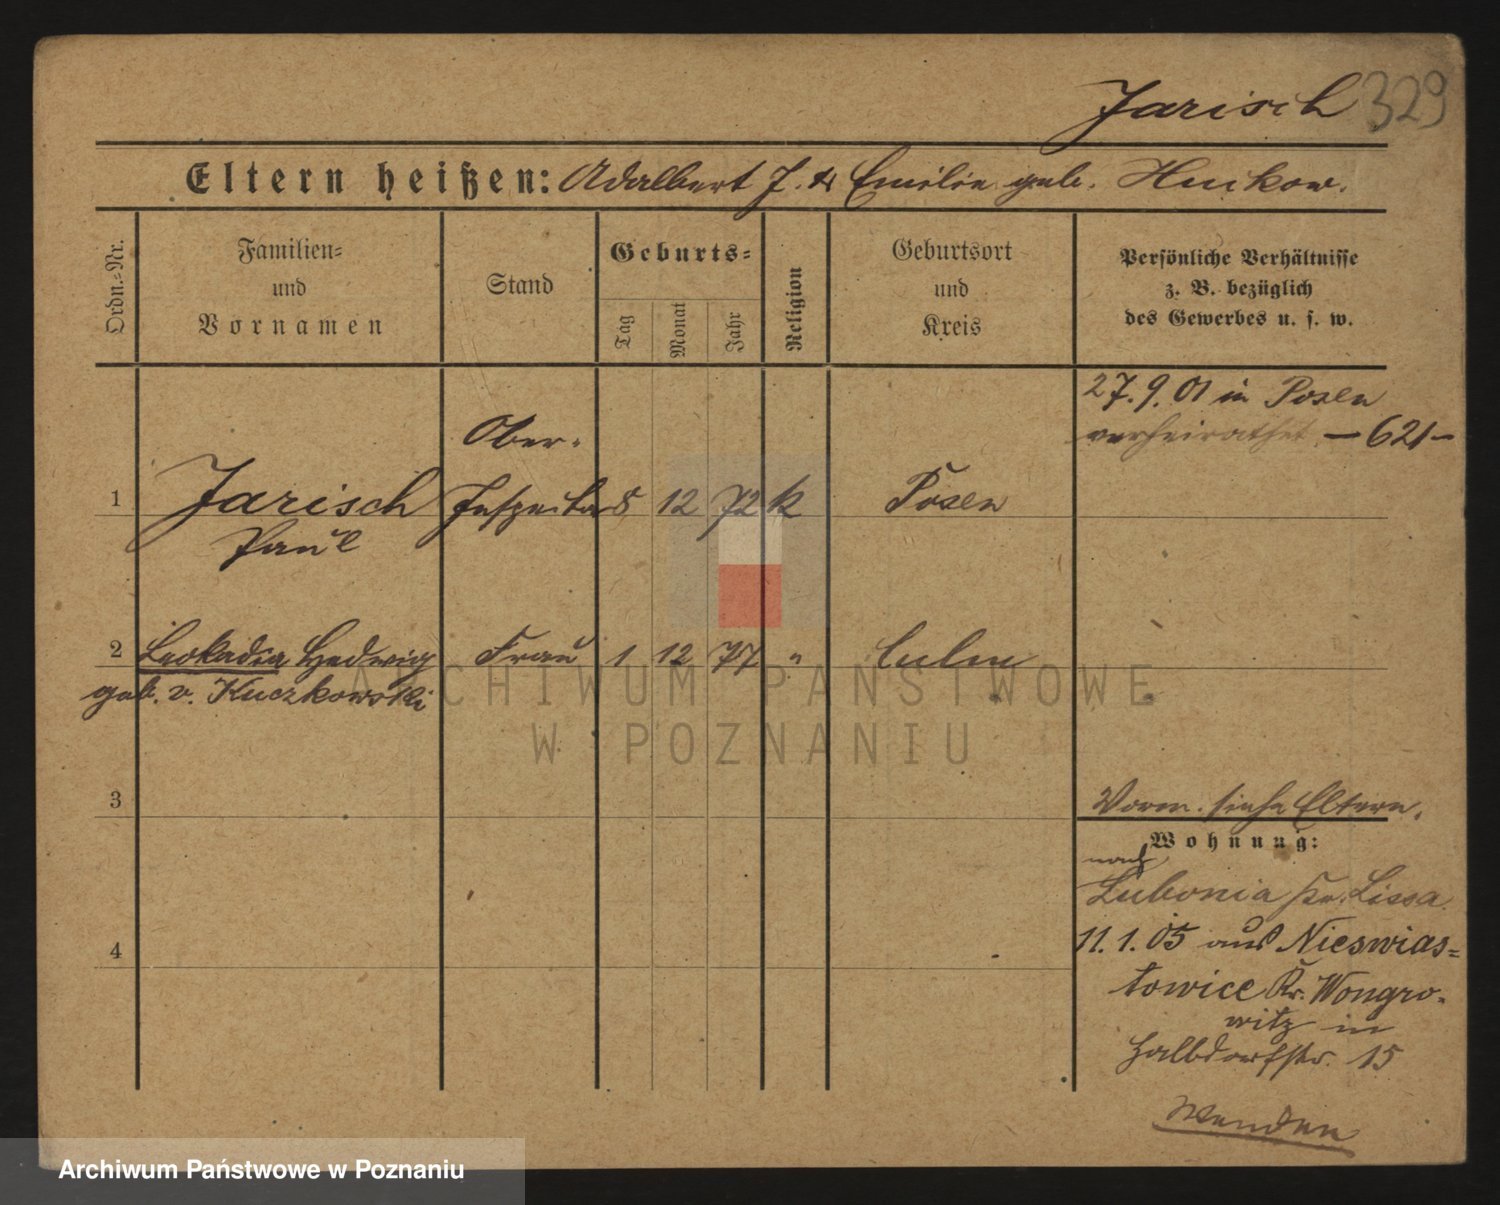 Jarisch 329
Eltern heißen: Adalbert J. & Emilie geb. Huckow.
Ordn.=Nr.
Familien=
und
Vornamen
Stand
Geburts=
Tag
Monat
Jahr
Religion
Geburtsort
und
Kreis
Persönliche Verhältnisse
z. B. bezüglich
des Gewerbes u. s. w.
27.9.01 in Posen
verheirathet — 621 —
Ober-
1 Jarisch Inspektor 8 12 72 k Posen
Paul
2 Leokadia Hedwig Frau 1 12 77 " Culm
geb. v. Kuczkowski
3
Vorm. siehe Eltern.
Wohnung:
nach
Lubonia Kr. Lissa
4
11.1.05 aus Nieswias=
towice Kr. Wongro-
witz in
Halbdorfstr. 15
Wenden
ARCHIWUM PAŃSTWOWE
W POZNANIU
Archiwum Państwowe w Poznaniu